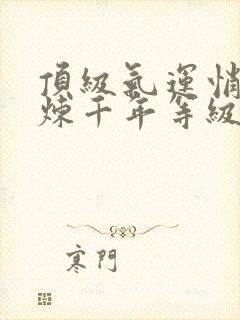 頂級氣運悄
煉千年等級
寒門